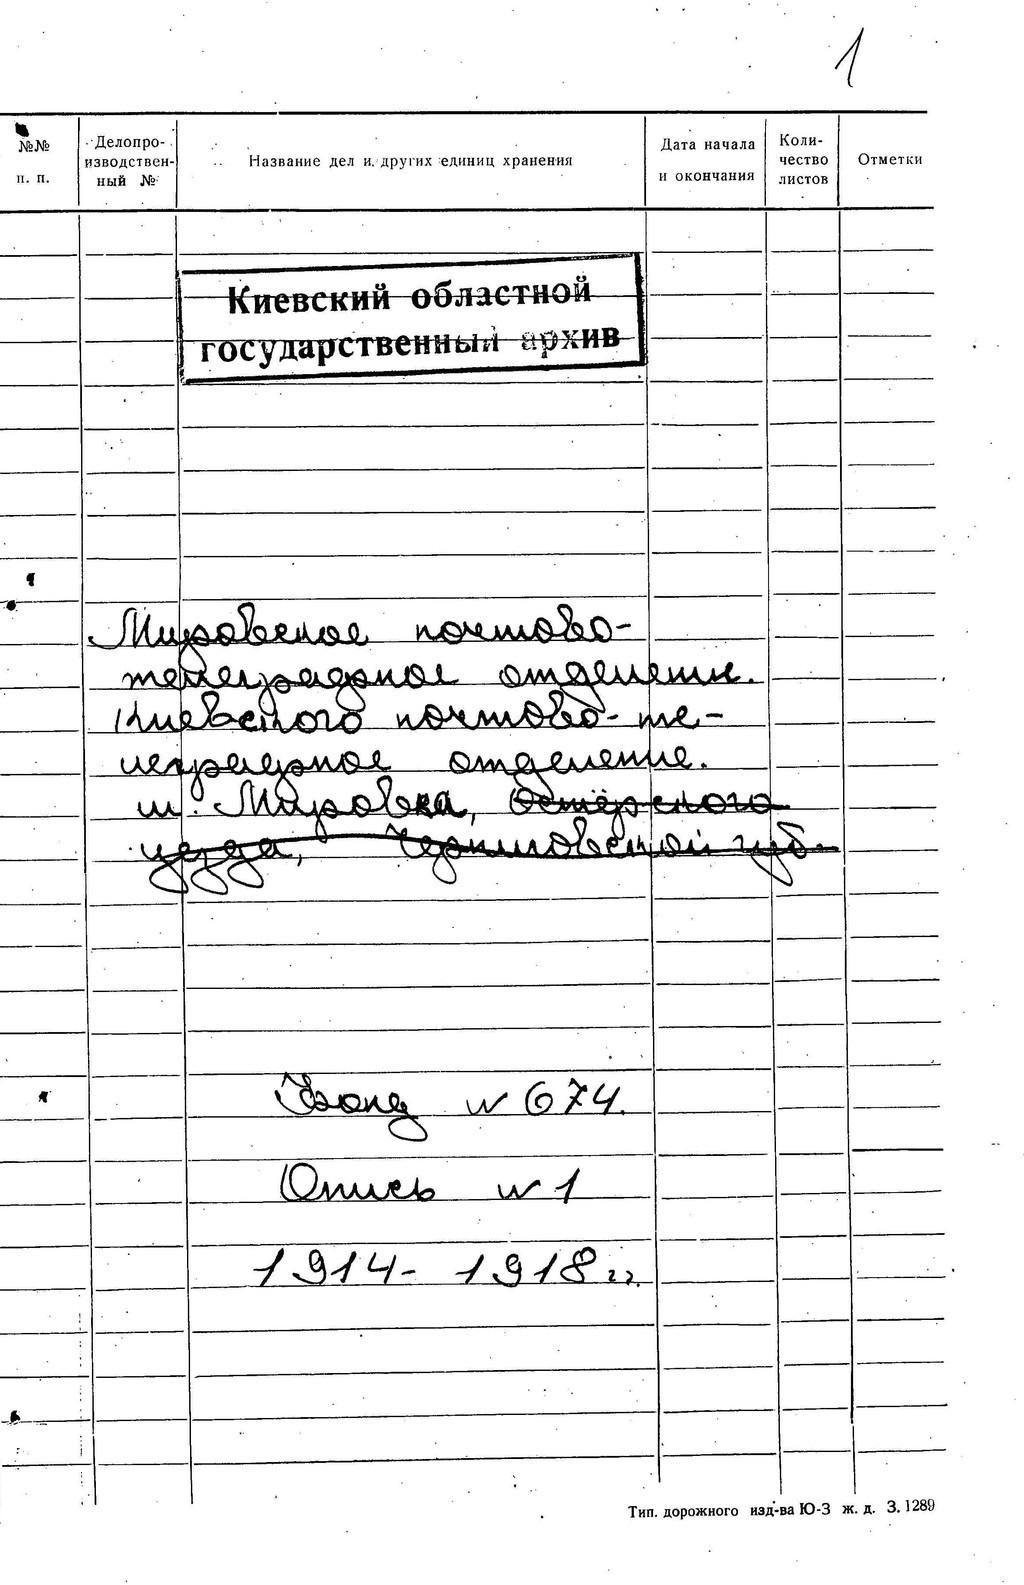 1
№№ п. п.
Делопро-
изводствен-
ный №
Название дел и других единиц хранения
Дата начала
и окончания
Коли-
чество
листов
Отметки
Киевский областной
государственный архив
Мировское почтово-
телеграфное отделени.
Киевского почтово-те-
леграфное отделение.
м. Мировка, Остёрского
уезда, Черниговской губ.
Фонд № 674.
Опись № 1
1914- 1918 г.г.
Тип. дорожного изд-ва Ю-З ж. д. З. 1289